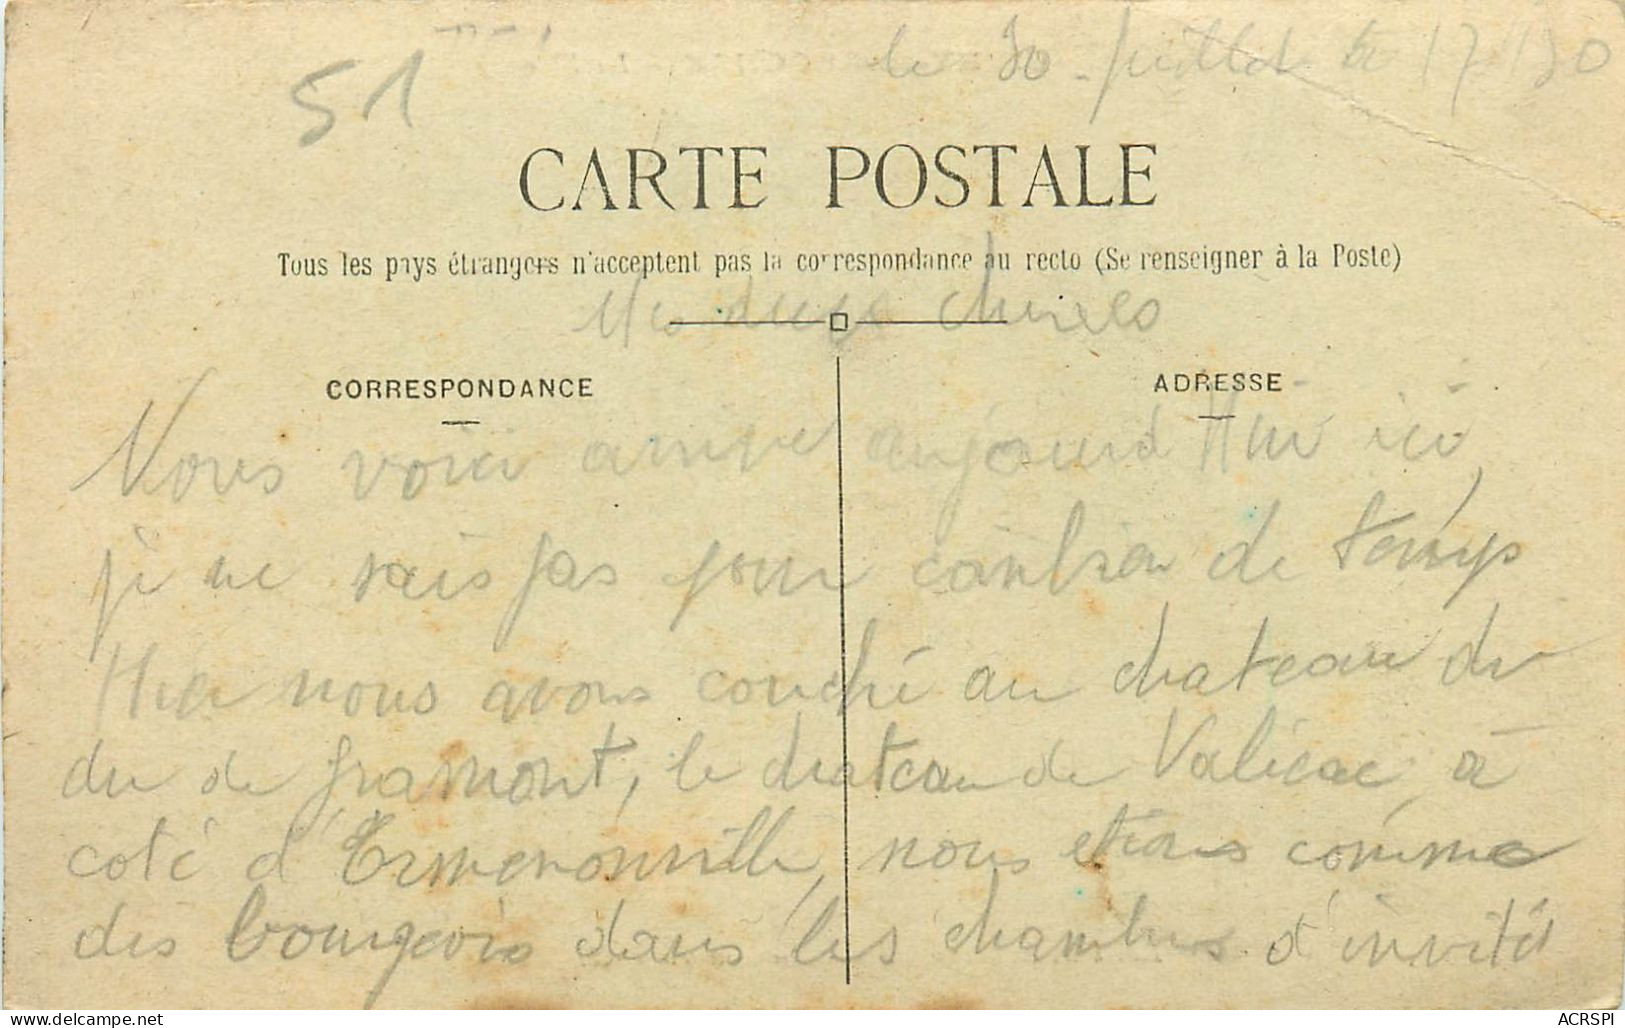 le 30 Juillet à 17 H 30
51
CARTE POSTALE
Tous les pays étrangers n'acceptent pas la correspondance au recto (Se renseigner à la Poste)
CORRESPONDANCE
ADRESSE
Nous voici arrivé aujourd Hui ici,
je ne sais pas pour combien de temps
Hier nous avons couché au chateau du
duc de gramont, le chateau de à
coté d'Ermenonville, nous etions comme
des bourgeois dans les chambres d'invités
ACRSPI